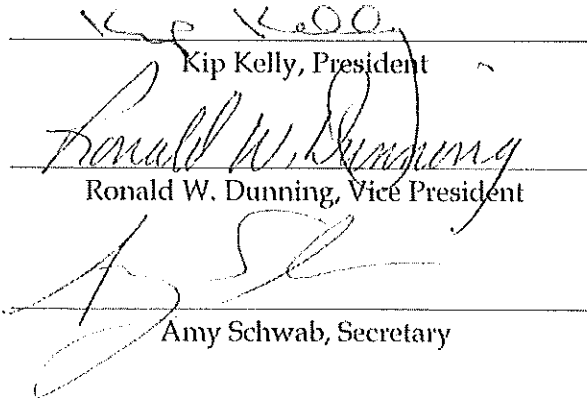 Kip Kelly
Kip Kelly, President
Ronald W. Dunning
Ronald W. Dunning, Vice President
Amy Schwab, Secretary